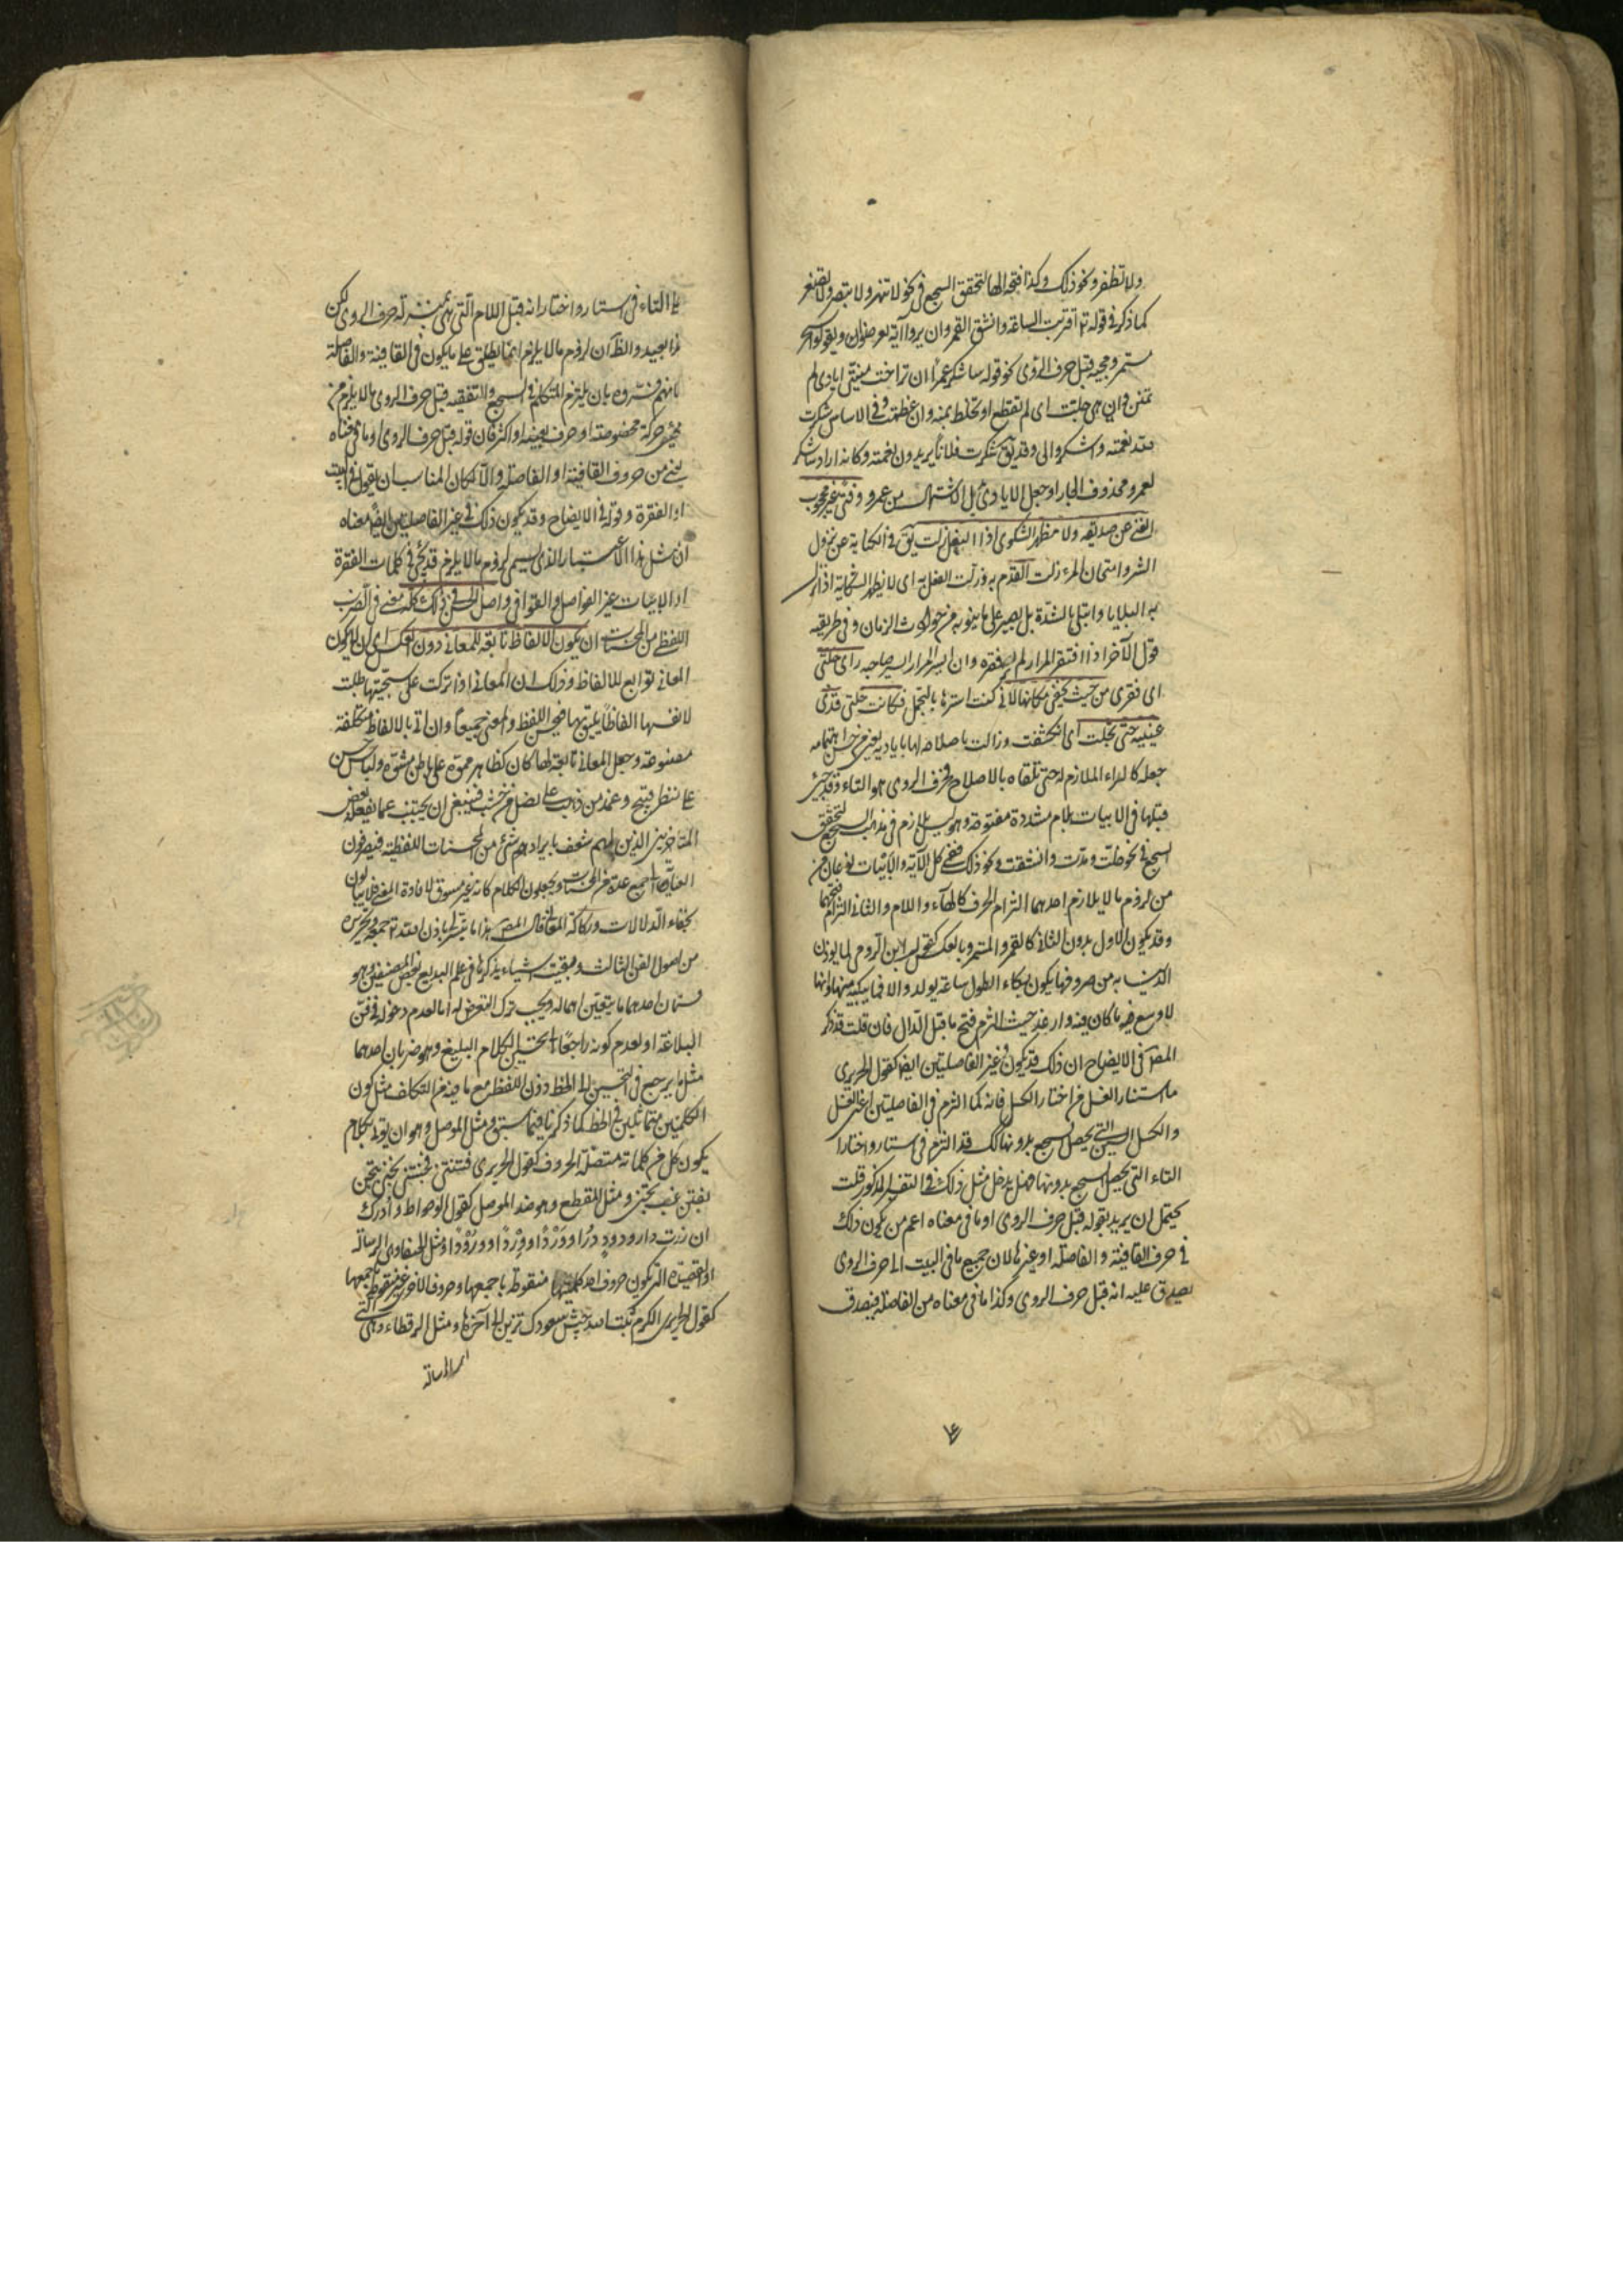 ولا تظفر ونحو ذلك وكذا فتحة الهاء لتحقق السجع في نحو لا تنهر ولا تبصر ولا تصغر
كما ذكر في قوله تع اقتربت الساعة وانشق القمر وان يروا آية يعرضوا ويقولوا سحر
مستمر ومجيئه قبل حرف الروي نحو قوله ساشكر عمرا ان تراخت منيتي ايادي لم
تمنن وان هي جلت اى لم تقطع او تخلط بمنة وان عظمت وفي الاساس شكرت
لله نعمته واشكروا لى وقد يق شكرت فلانا يريدون نعمته وكانه اراد ساشكر
لعمرو فحذف الجار او جعل الايادي بدل الاشتمال من عمرو وفتى غير محجوب
الغنى عن صديقه ولا مظهر الشكوى اذا النعل زلت يق في الكناية عن نزول
الشر وامتحان المرء زلت القدم به وزلت النعل به اى لا يظهر الشكاية اذا نزل
به البلايا وابتلى بالشدة بل يصبر على ما ينوبه من حوادث الزمان وفي طريقه
قول الآخر اذا افتقر المرار لم ير فقره وان ايسر المرار ايسر صاحبه رأى خلتى
اى فقرى من حيث يخفى مكانها لاني كنت استرها بالتجمل فكانت خلتى قذى
عينيه حتى تجلت اى انكشفت وزالت باصلاحه لها باياديه يعنى من حسن اهتمامه
جعله كالداء الملازم له حتى تلقاه بالاصلاح فحرف الروي هو التاء وقد جيئ
قبلها في الابيات بلام مشددة مفتوحة وهو ليس بلازم في مذهب السجع لتحقق
السجع في نحو جلت ومدت وانشقت ونحو ذلك ففي كل الآية والابيات نوعان من
من لزوم ما لا يلزم احدهما التزام الحرف كالهاء واللام والثاني التزام فتحهما
وقد يكون الاول بدون الثاني كالقمر والمستمر وبالعكس كقول ابن الرومي لما يوذن
الدنيا به من صروفها يكون بكاء الطفل ساعة يولد والا فما يبكيه منها وانها
لاوسع مما كان فيه وارغد حيث التزم فتح ما قبل الدال فان قلت قد ذكر
المص في الايضاح ان ذلك قد يكون في غير الفاصلتين ايضا كقول الحريري
ما استتار العسل من اختار الكسل فانه كما التزم في الفاصلتين اعنى العسل
والكسل السين التي يحصل السجع بدونها كذلك قد التزم في استتار واختار
التاء التي يحصل السجع بدونها فهل يدخل مثل ذلك في التفسير المذكور قلت
يحتمل ان يريد بقوله قبل حرف الروي او ما في معناه اعم من ان يكون ذلك
في حرف القافية والفاصلة او غيرها لان جميع ما في البيت الى حرف الروي
يصدق عليه انه قبل حرف الروي وكذا ما في معناه من الفاصلة فيصدق
على التاء في استتار واختار انه قبل اللام التي هي بمنزلة حرف الروي لكن
هذا بعيد والظاهر ان لزوم ما لا يلزم انما يطلق على ما يكون في القافية والفاصلة
لانهم فسروه بان يلتزم المتكلم في السجع والتقفية قبل حرف الروي ما لا يلزم من
مجيئ حركة مخصوصة او حرف بعينه او اكثر فان قوله قبل حرف الروي او ما في معناه
يعنى من حروف القافية او الفاصلة والا لكان المناسب ان يقول في البيت
او الفقرة وقوله في الايضاح وقد يكون ذلك في غير الفاصلتين ايضا معناه
ان مثل هذا الاعتبار الذي يسمى لزوم ما لا يلزم قد يجئ في كلمات الفقرة
او الابيات غير الفواصل والقوافي واصل الحسن في ذلك كله يعنى في الضرب
اللفظى من المحسنات ان يكون الالفاظ تابعة للمعاني دون العكس اى لا ان يكون
المعاني توابع للالفاظ وذلك ان المعاني اذا تركت على سجيتها طلبت
لانفسها الفاظا يليق بها فيحسن اللفظ والمعنى جميعا وان اتى بالالفاظ متكلفة
مصنوعة وجعل المعاني تابعة لها كان كظاهر مموه على باطن مشوه ولباس حسن
على منظر قبيح وغمد من ذهب على نصل من خشب فينبغي ان يجتنب عما يفعله بعض
المتاخرين الذين لهم شعف بايراد شئ من المحسنات اللفظية فيصرفون
العناية الى جمع عدة من المحسنات ويجعلون الكلام كانه غير مسوق لافادة المعنى فلا يبالون
بخفاء الدلالات وركاكة المعاني قال المص هذا ما تيسر لي باذن الله تع جمعه وتحريره
من اصول الفن الثالث وبقيت اشياء يذكرها في علم البديع بعض المصنفين وهو
قسمان احدهما ما يتعين اهماله ويجب ترك التعرض له اما لعدم دخوله في فن
البلاغة او لعدم كونه راجعا الى تحسين الكلام البليغ وهو ضربان احدهما
مثل ما يرجع في التحسين الى الخط دون اللفظ مع ما فيه من التكلف مثل كون
الكلمتين متماثلين في الخط كما ذكرنا فيما سبق ومثل الموصل وهو ان يؤتى بكلام
يكون كل من كلماته متصلة الحروف كقول الحريري فتنتنى فجننتنى تجنى بتجن
يفتن غب تجنى ومثل المقطع وهو ضد الموصل كقول الوطواط وادرك
ان زرت دار ودود درا و وردا ووردا وورودا ومثل الخيفا وهي الرسالة
او القصيدة التي يكون حروف احد كلمتيها منقوطة باجمعها وحروف الاخرى غير منقوطة باجمعها
كقول الحريري الكرم ثبت الله جيش سعودك تزين الى آخرها ومثل الرقطاء وهي التي
الرسالة